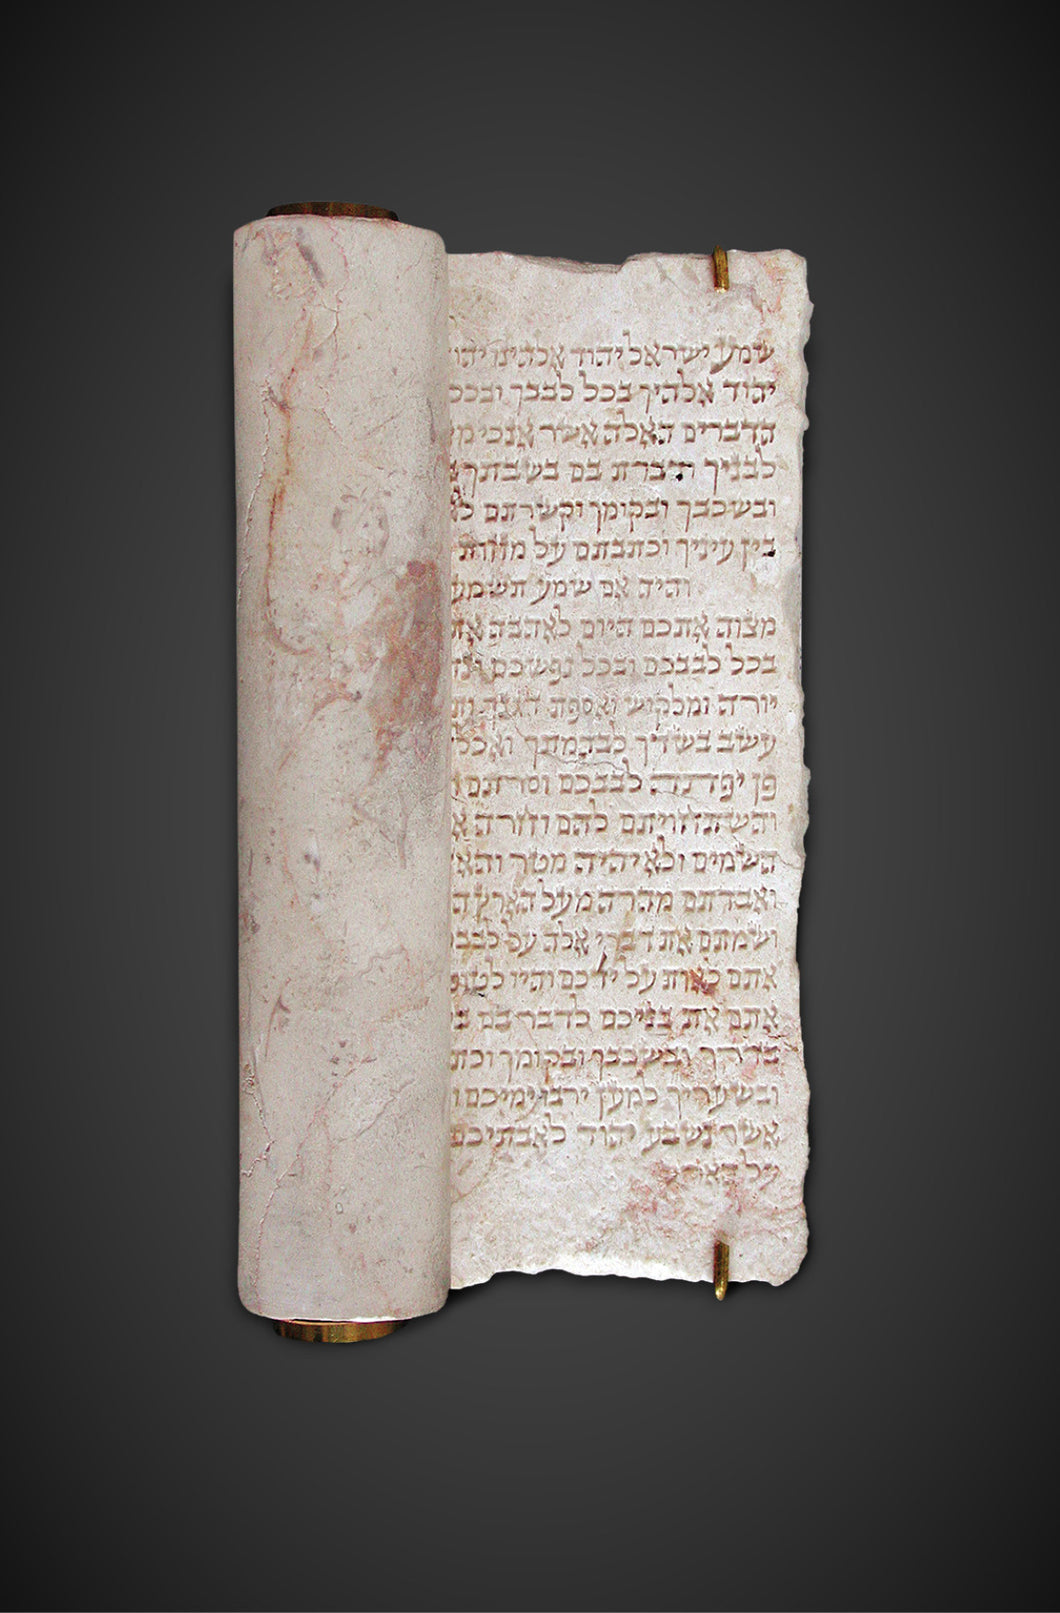 שמע ישראל יהוד אלהינו יהו
יהוד אלהיך בכל לבבך ובכל
הדברים האלה אשר אנכי מ
לבניך ודברת בם בשבתך
ובשכבך ובקומך וקשרתם ל
בין עיניך וכתבתם על מזוזת
והיה אם שמע תשמע
מצוה אתכם היום לאהבה את
בכל לבבכם ובכל נפשכם ונת
יורה ומלקוש ואספת דגנך ות
עשב בשדך לבהמתך ואכל
פן יפתה לבבכם וסרתם ו
והשתחויתם להם וחרה א
השמים ולא יהיה מטר והא
ואבדתם מהרה מעל הארץ ה
ושמתם את דברי אלה על לבב
אתם לאות על ידכם והיו לטוט
אתם את בניכם לדבר בם ב
בדרך ובשכבך ובקומך וכת
ובשעריך למען ירבו ימיכם ו
אשר נשבע יהוד לאבתיכם
על הארץ